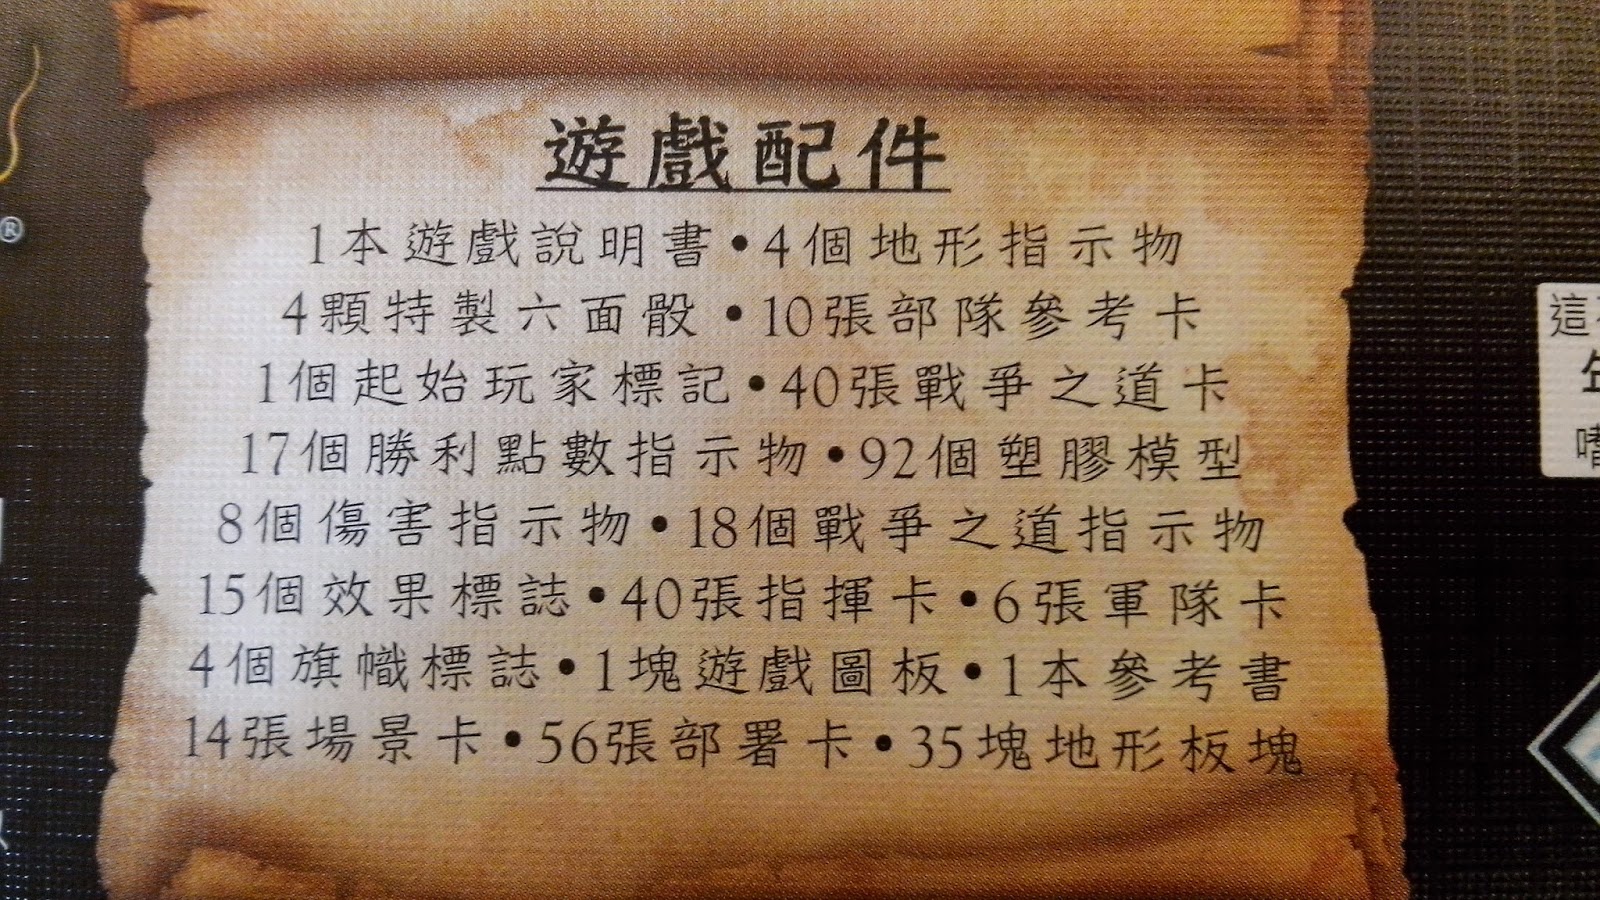 遊戲配件
1本遊戲說明書•4個地形指示物
4顆特製六面骰•10張部隊參考卡
1個起始玩家標記•40張戰爭之道卡
17個勝利點數指示物•92個塑膠模型
8個傷害指示物•18個戰爭之道指示物
15個效果標誌•40張指揮卡•6張軍隊卡
4個旗幟標誌•1塊遊戲圖板•1本參考書
14張場景卡•56張部署卡•35塊地形板塊
®
這
嗜